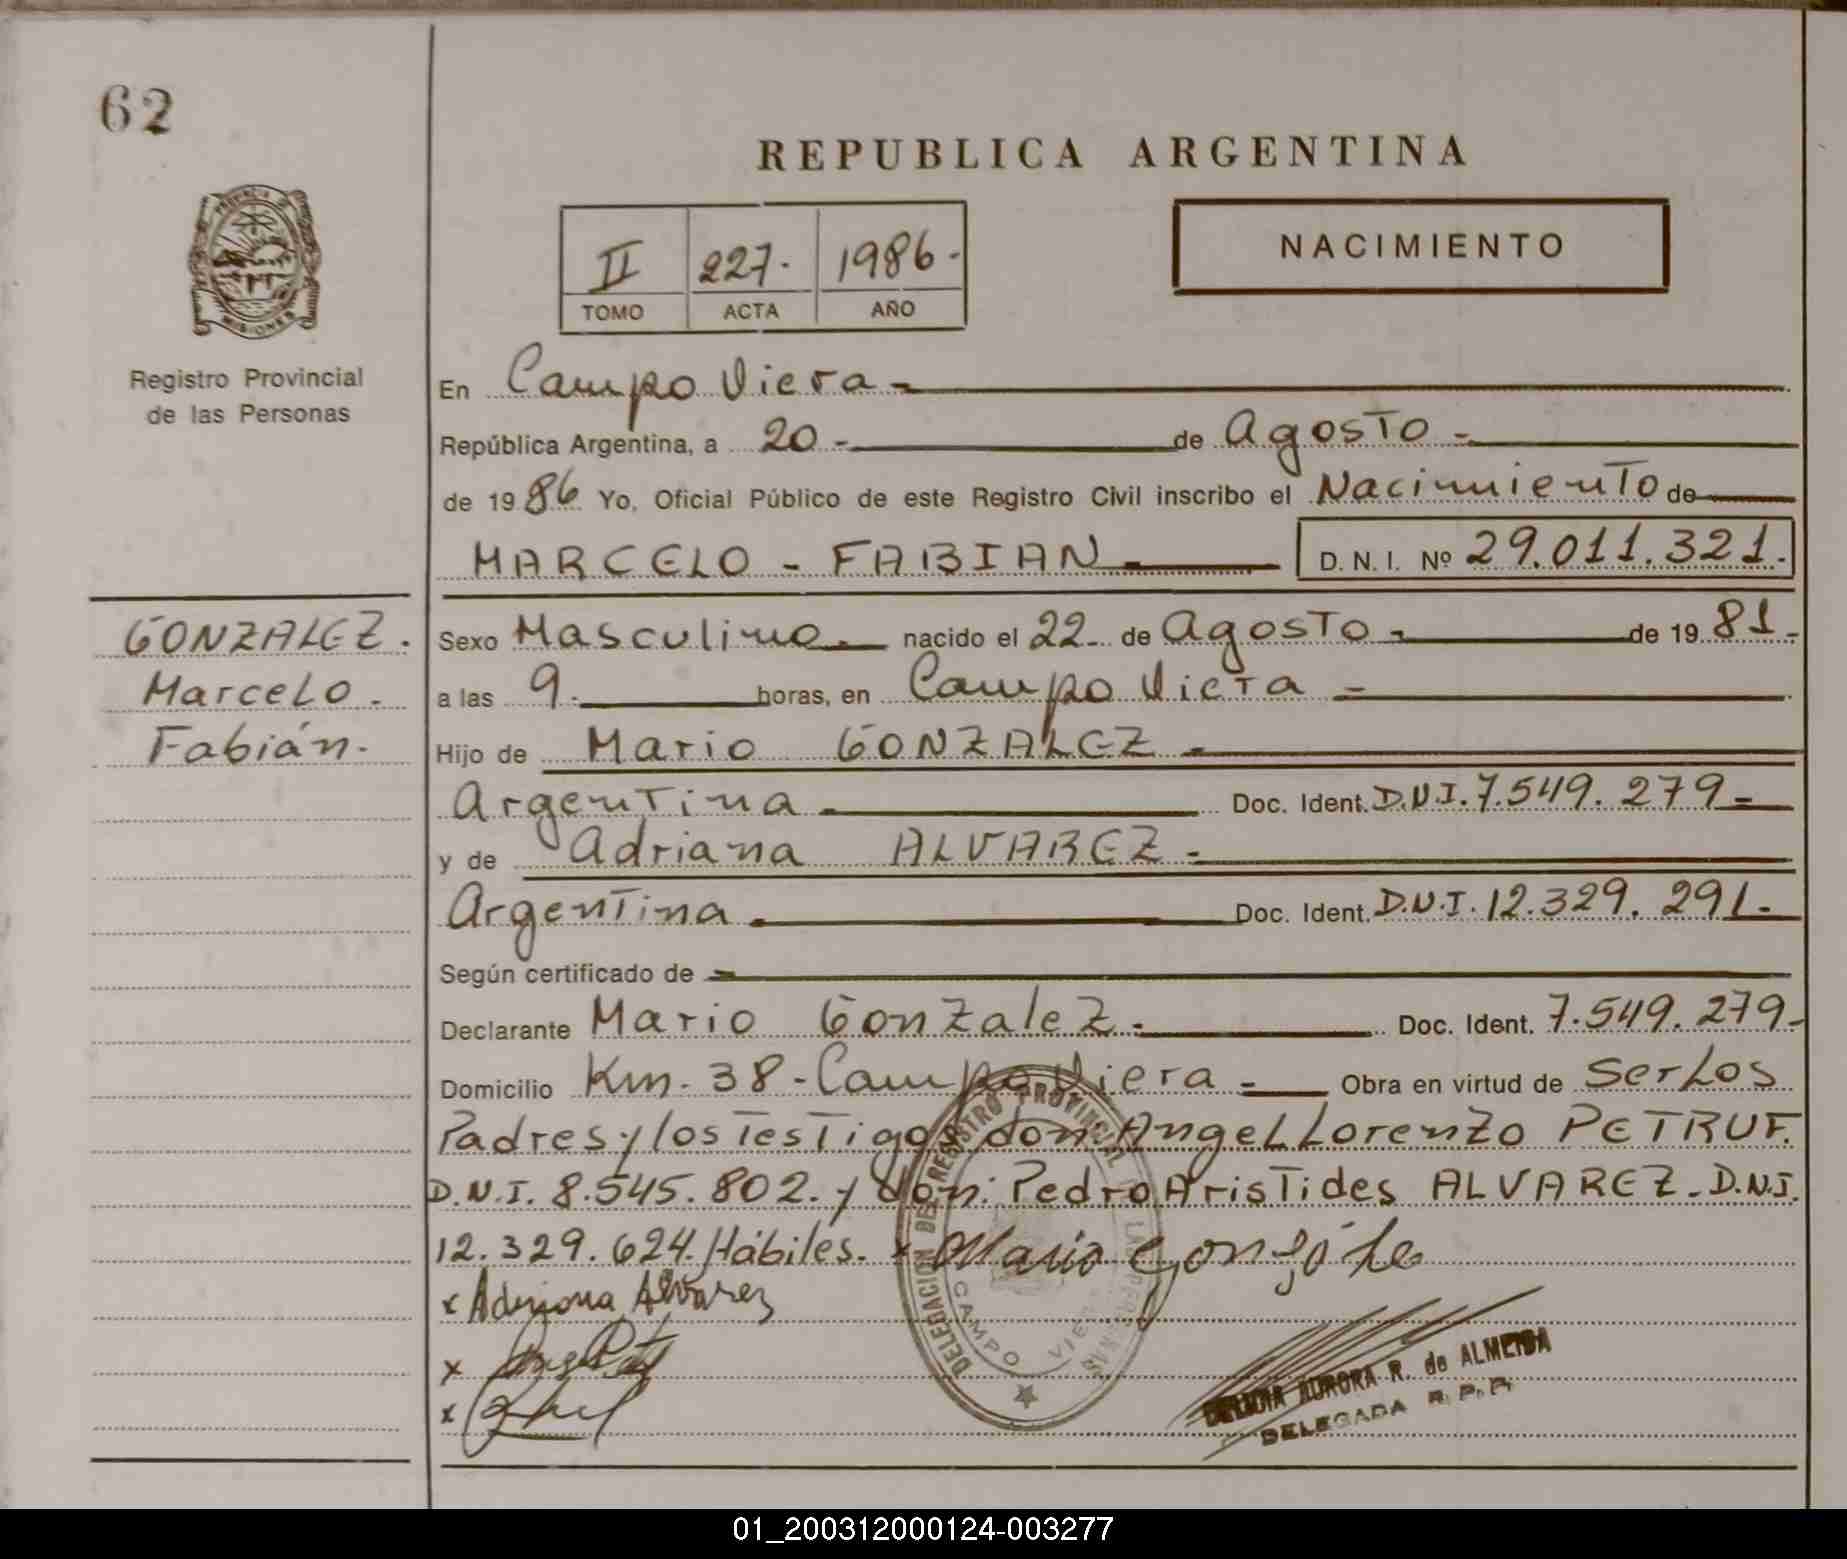 62
REPUBLICA ARGENTINA
PROVINCIA DE
MISIONES
Registro Provincial
de las Personas
II 227. 1986.-
TOMO ACTA AÑO
NACIMIENTO
En Campo Viera-
República Argentina, a 20- de Agosto-
de 1986 Yo, Oficial Público de este Registro Civil inscribo el Nacimiento de
MARCELO - FABIAN D. N. I. Nº 29.011.321.
GONZALEZ.
Marcelo.
Fabián.
Sexo Masculino- nacido el 22- de Agosto- de 1981-
a las 9. horas, en Campo Viera-
Hijo de Mario GONZALEZ-
Argentina- Doc. Ident. D.N.I. 7.549.279-
y de Adriana ALVAREZ-
Argentina- Doc. Ident. D.N.I. 12.329.291.-
Según certificado de -
Declarante Mario Gonzalez- Doc. Ident. 7.549.279-
Domicilio Km. 38-Campo Viera- Obra en virtud de Ser Los
Padres y los Testigos don: Angel Lorenzo PETRUF.
D.N.I. 8.545.802. y don: Pedro Aristides ALVAREZ-D.N.I.
12.329.624. Hábiles. x Mario Gonzále
x Adriana Alvarez
x
x
DELEGACION DEL REGISTRO PROVINCIAL DE LAS PERSONAS
CAMPO VIERA
AURORA R. de ALMEIDA
DELEGADA R.P.P.
01_200312000124-003277